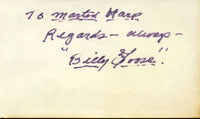 To Martin Karp
Regards - always -
"Billy Goose".